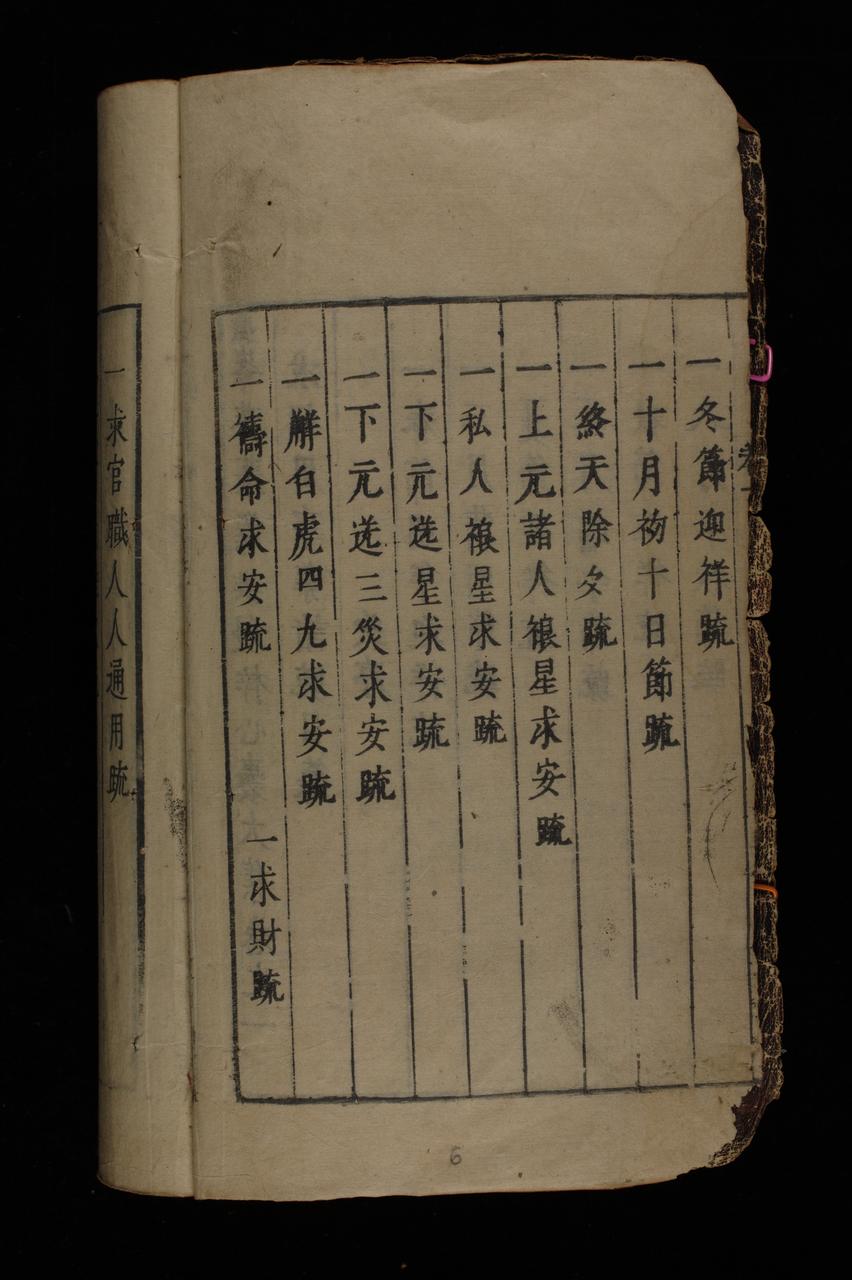 卷一
一冬節迎祥疏
一十月初十日節疏
一終天除夕疏
一上元諸人禳星求安疏
一私人禳星求安疏
一下元送星求安疏
一下元送三災求安疏
一解白虎四九求安疏
一禱命求安疏 一求財疏
一求官職人人通用疏
6